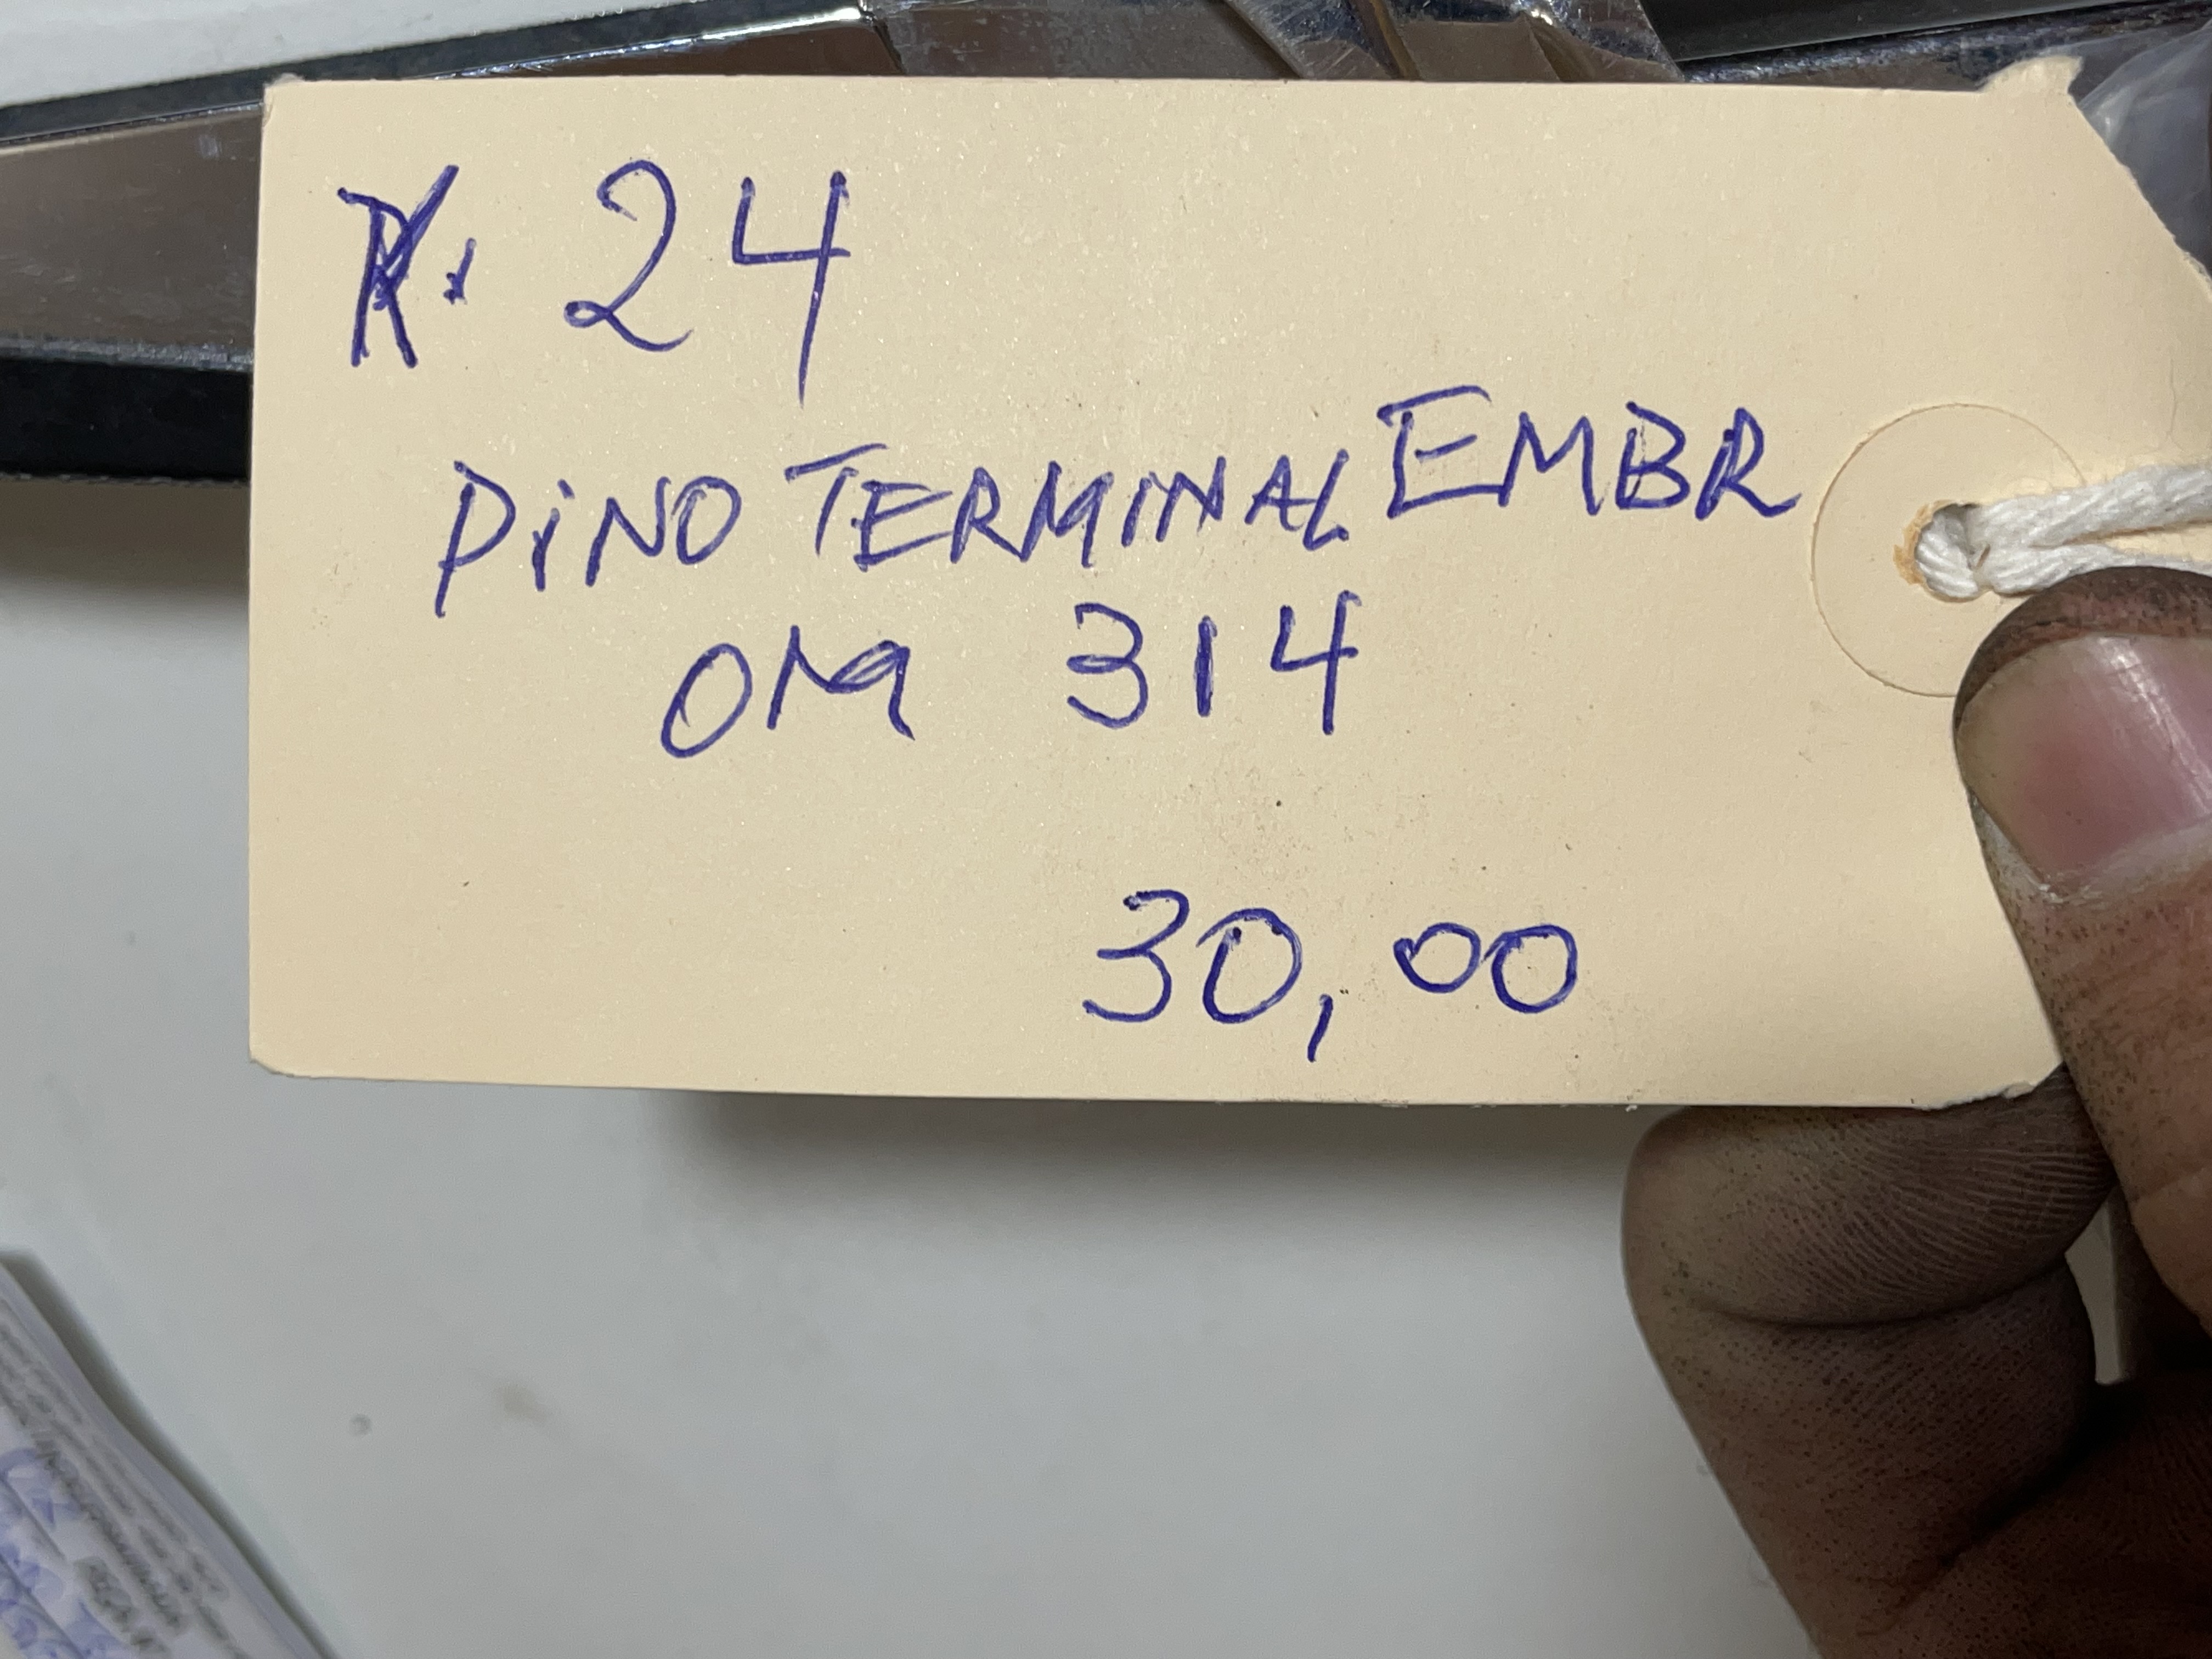 K. 24
PiNO TERMINAL EMBR
OM 314
30,00